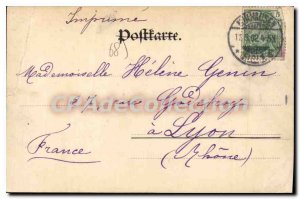 Imprimé
Postkarte.
68
Mademoiselle Hélène Genin
rue Godefroy
à Lyon
(Rhône)
France